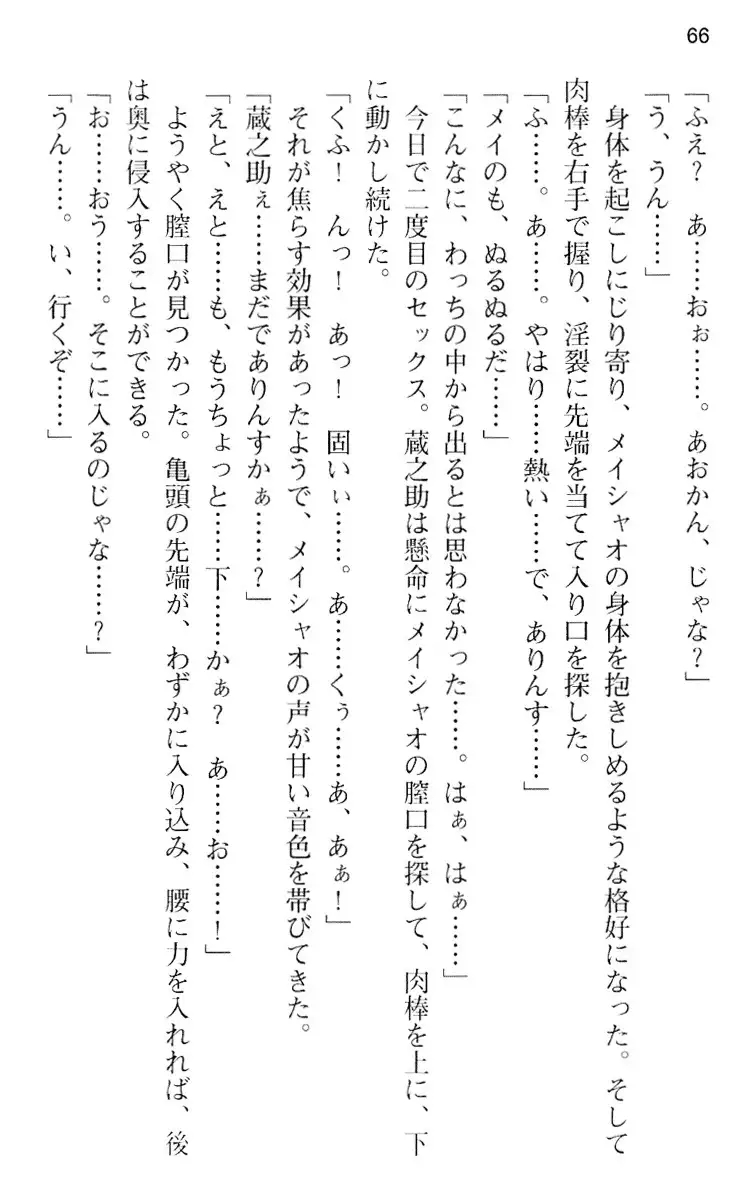 66
「ふえ?　あ……おぉ……。あおかん、じゃな?」
「う、うん……」
　身体を起こしにじり寄り、メイシャオの身体を抱きしめるような格好になった。そして
肉棒を右手で握り、淫裂に先端を当てて入り口を探した。
「ふ……。あ……。やはり……熱い……で、ありんす……」
「メイのも、ぬるぬるだ……」
「こんなに、わっちの中から出るとは思わなかった……。はぁ、はぁ……」
　今日で二度目のセックス。蔵之助は懸命にメイシャオの膣口を探して、肉棒を上に、下
に動かし続けた。
「くふ!　んっ!　あっ!　固いぃ……。あ……くぅ……あ、あぁ!」
　それが焦らす効果があったようで、メイシャオの声が甘い音色を帯びてきた。
「蔵之助ぇ……まだでありんすかぁ……?」
「えと、えと……も、もうちょっと……下……かぁ?　あ……お……!」
　ようやく膣口が見つかった。亀頭の先端が、わずかに入り込み、腰に力を入れれば、後
は奥に侵入することができる。
「お……おう……。そこに入るのじゃな……?」
「うん……。い、行くぞ……」